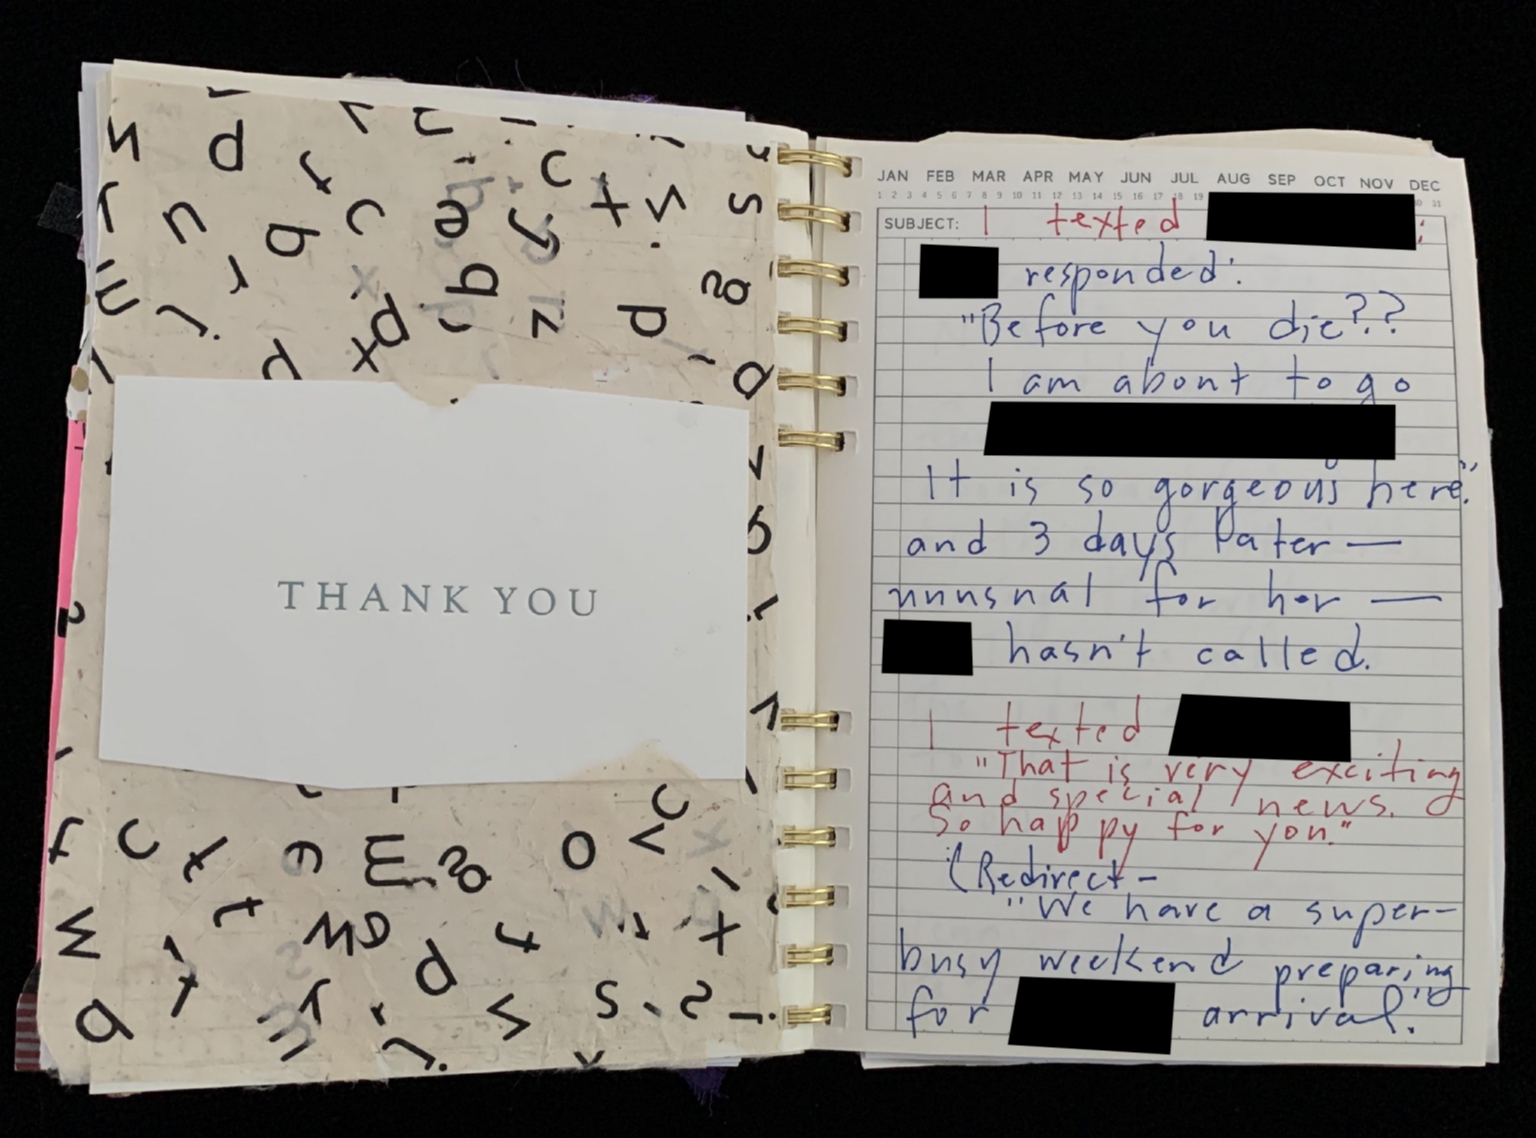 THANK YOU
JAN FEB MAR APR MAY JUN JUL AUG SEP OCT NOV DEC
1 2 3 4 5 6 7 8 9 10 11 12 13 14 15 16 17 18 19 30 31
SUBJECT: I texted :
responded:
"Before you die??
I am about to go
It is so gorgeous here."
and 3 days later —
unusual for her —
hasn't called.
I texted
"That is very exciting
and special news.
So happy for you."
(Redirect —
"We have a super-
busy weekend preparing
for arrival."